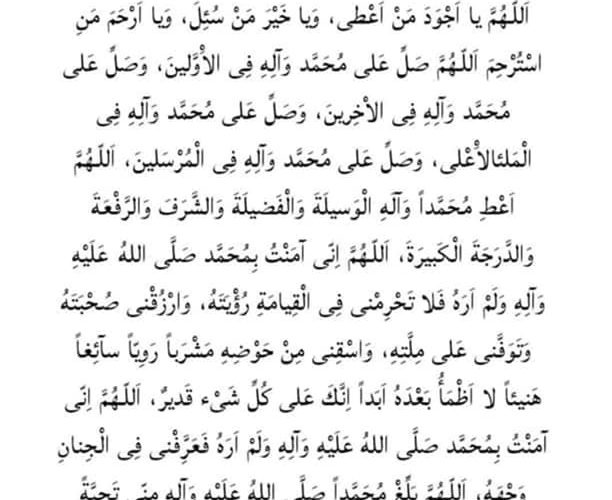 اَللّهُمَّ يا اَجْوَدَ مَنْ اَعْطى، وَيا خَيْرَ مَنْ سُئِلَ، وَيا اَرْحَمَ مَنِ
اسْتُرْحِمَ اَللّهُمَّ صَلِّ عَلى مُحَمَّد وَآلِهِ فِى الاْوَّلينَ، وَصَلِّ عَلى
مُحَمَّد وَآلِهِ فِى الاْخِرينَ، وَصَلِّ عَلى مُحَمَّد وَآلِهِ فِى
الْمَلئالاَْعْلى، وَصَلِّ عَلى مُحَمَّد وَآلِهِ فِى الْمُرْسَلينَ، اَللّهُمَّ
اَعْطِ مُحَمَّداً وَآلَهِ الْوَسيلَةَ وَالْفَضيلَةَ وَالشَّرَفَ وَالرِّفْعَةَ
وَالدَّرَجَةَ الْكَبيرَةَ، اَللّهُمَّ اِنّى آمَنْتُ بِمُحَمَّد صَلَّى اللهُ عَلَيْهِ
وَآلِهِ وَلَمْ اَرَهُ فَلا تَحْرِمْنى فِى الْقِيامَةِ رُؤْيَتَهُ، وَارْزُقْنى صُحْبَتَهُ
وَتَوَفَّنى عَلى مِلَّتِهِ، وَاسْقِنى مِنْ حَوْضِهِ مَشْرَباً رَوِيّاً سآئِغاً
هَنيئاً لا اَظْمَأُ بَعْدَهُ اَبَداً اِنَّكَ عَلى كُلِّ شَىْء قَديرٌ، اَللّهُمَّ اِنّى
آمَنْتُ بِمُحَمَّد صَلَّى اللهُ عَلَيْهِ وَآلِهِ وَلَمْ اَرَهُ فَعَرِّفْنى فِى الْجِنانِ
وَجْهَهُ، اَللّهُمَّ بَلِّغْ مُحَمَّداً صَلَّى اللهُ عَلَيْهِ وَآلِهِ مِنّى تَحِيَّةً